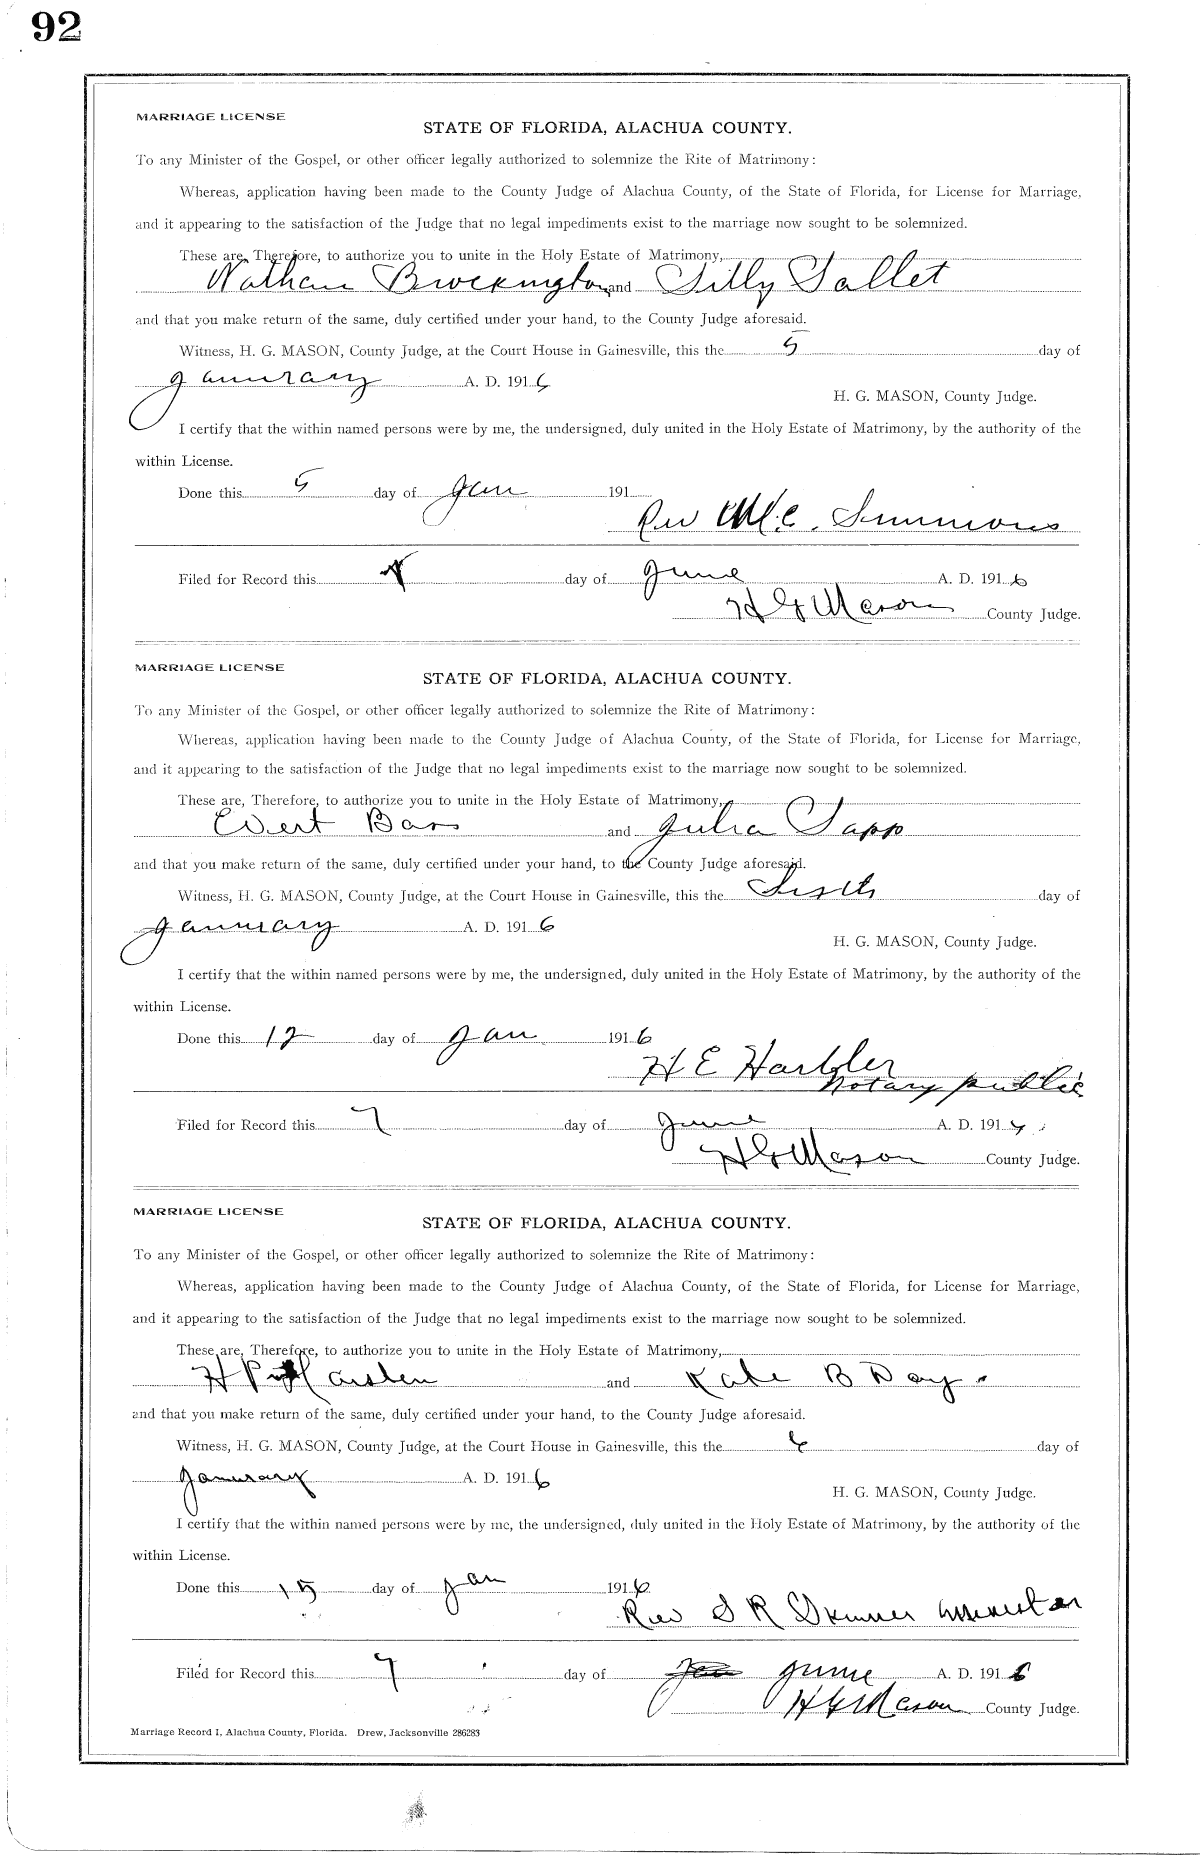 92
MARRIAGE LICENSE
STATE OF FLORIDA, ALACHUA COUNTY.
To any Minister of the Gospel, or other officer legally authorized to solemnize the Rite of Matrimony:
Whereas, application having been made to the County Judge of Alachua County, of the State of Florida, for License for Marriage,
and it appearing to the satisfaction of the Judge that no legal impediments exist to the marriage now sought to be solemnized.
These are, Therefore, to authorize you to unite in the Holy Estate of Matrimony,
Nathan Brockington and Silly Sallet
and that you make return of the same, duly certified under your hand, to the County Judge aforesaid.
Witness, H. G. MASON, County Judge, at the Court House in Gainesville, this the 5 day of
Janurary A. D. 1916
H. G. MASON, County Judge.
I certify that the within named persons were by me, the undersigned, duly united in the Holy Estate of Matrimony, by the authority of the
within License.
Done this 5 day of Jan 191
Rev M.C. Simmons
Filed for Record this day of June A. D. 1916
H G Mason County Judge.
MARRIAGE LICENSE
STATE OF FLORIDA, ALACHUA COUNTY.
To any Minister of the Gospel, or other officer legally authorized to solemnize the Rite of Matrimony:
Whereas, application having been made to the County Judge of Alachua County, of the State of Florida, for License for Marriage,
and it appearing to the satisfaction of the Judge that no legal impediments exist to the marriage now sought to be solemnized.
These are, Therefore, to authorize you to unite in the Holy Estate of Matrimony,
Evert Bass and Julia Sapp
and that you make return of the same, duly certified under your hand, to the County Judge aforesaid.
Witness, H. G. MASON, County Judge, at the Court House in Gainesville, this the day of
Janurary A. D. 1916
H. G. MASON, County Judge.
I certify that the within named persons were by me, the undersigned, duly united in the Holy Estate of Matrimony, by the authority of the
within License.
Done this 12 day of Jan 1916
H E
Notary public
Filed for Record this 7 day of June A. D. 191
H G Mason County Judge.
MARRIAGE LICENSE
STATE OF FLORIDA, ALACHUA COUNTY.
To any Minister of the Gospel, or other officer legally authorized to solemnize the Rite of Matrimony:
Whereas, application having been made to the County Judge of Alachua County, of the State of Florida, for License for Marriage,
and it appearing to the satisfaction of the Judge that no legal impediments exist to the marriage now sought to be solemnized.
These are, Therefore, to authorize you to unite in the Holy Estate of Matrimony,
H P and Kate B Day
and that you make return of the same, duly certified under your hand, to the County Judge aforesaid.
Witness, H. G. MASON, County Judge, at the Court House in Gainesville, this the 6 day of
Janurary A. D. 1916
H. G. MASON, County Judge.
I certify that the within named persons were by me, the undersigned, duly united in the Holy Estate of Matrimony, by the authority of the
within License.
Done this 15 day of Jan 1916
Rev S R Skinner
Filed for Record this 7 day of June A. D. 1916
H G Mason County Judge.
Marriage Record I, Alachua County, Florida. Drew, Jacksonville 286283